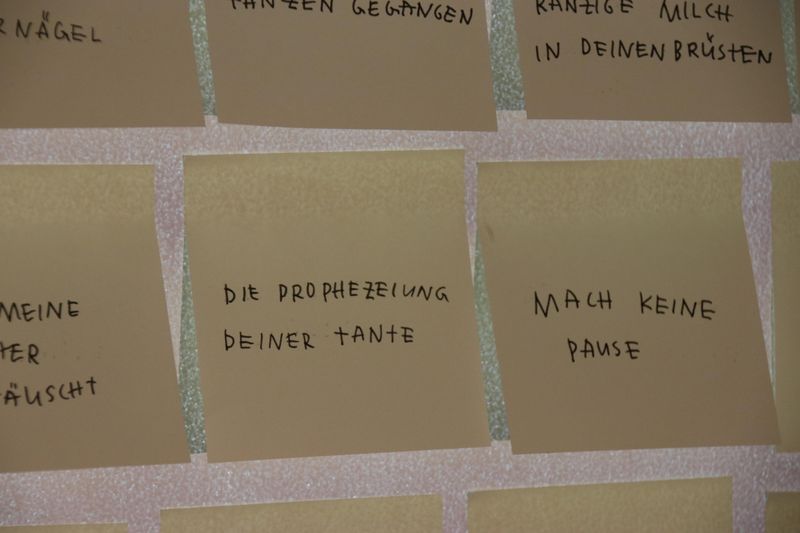 NÄGEL
TANZEN GEGANGEN
RANZIGE MILCH
IN DEINEN BRÜSTEN
MEINE
DIE PROPHEZEIUNG
DEINER TANTE
MACH KEINE
PAUSE